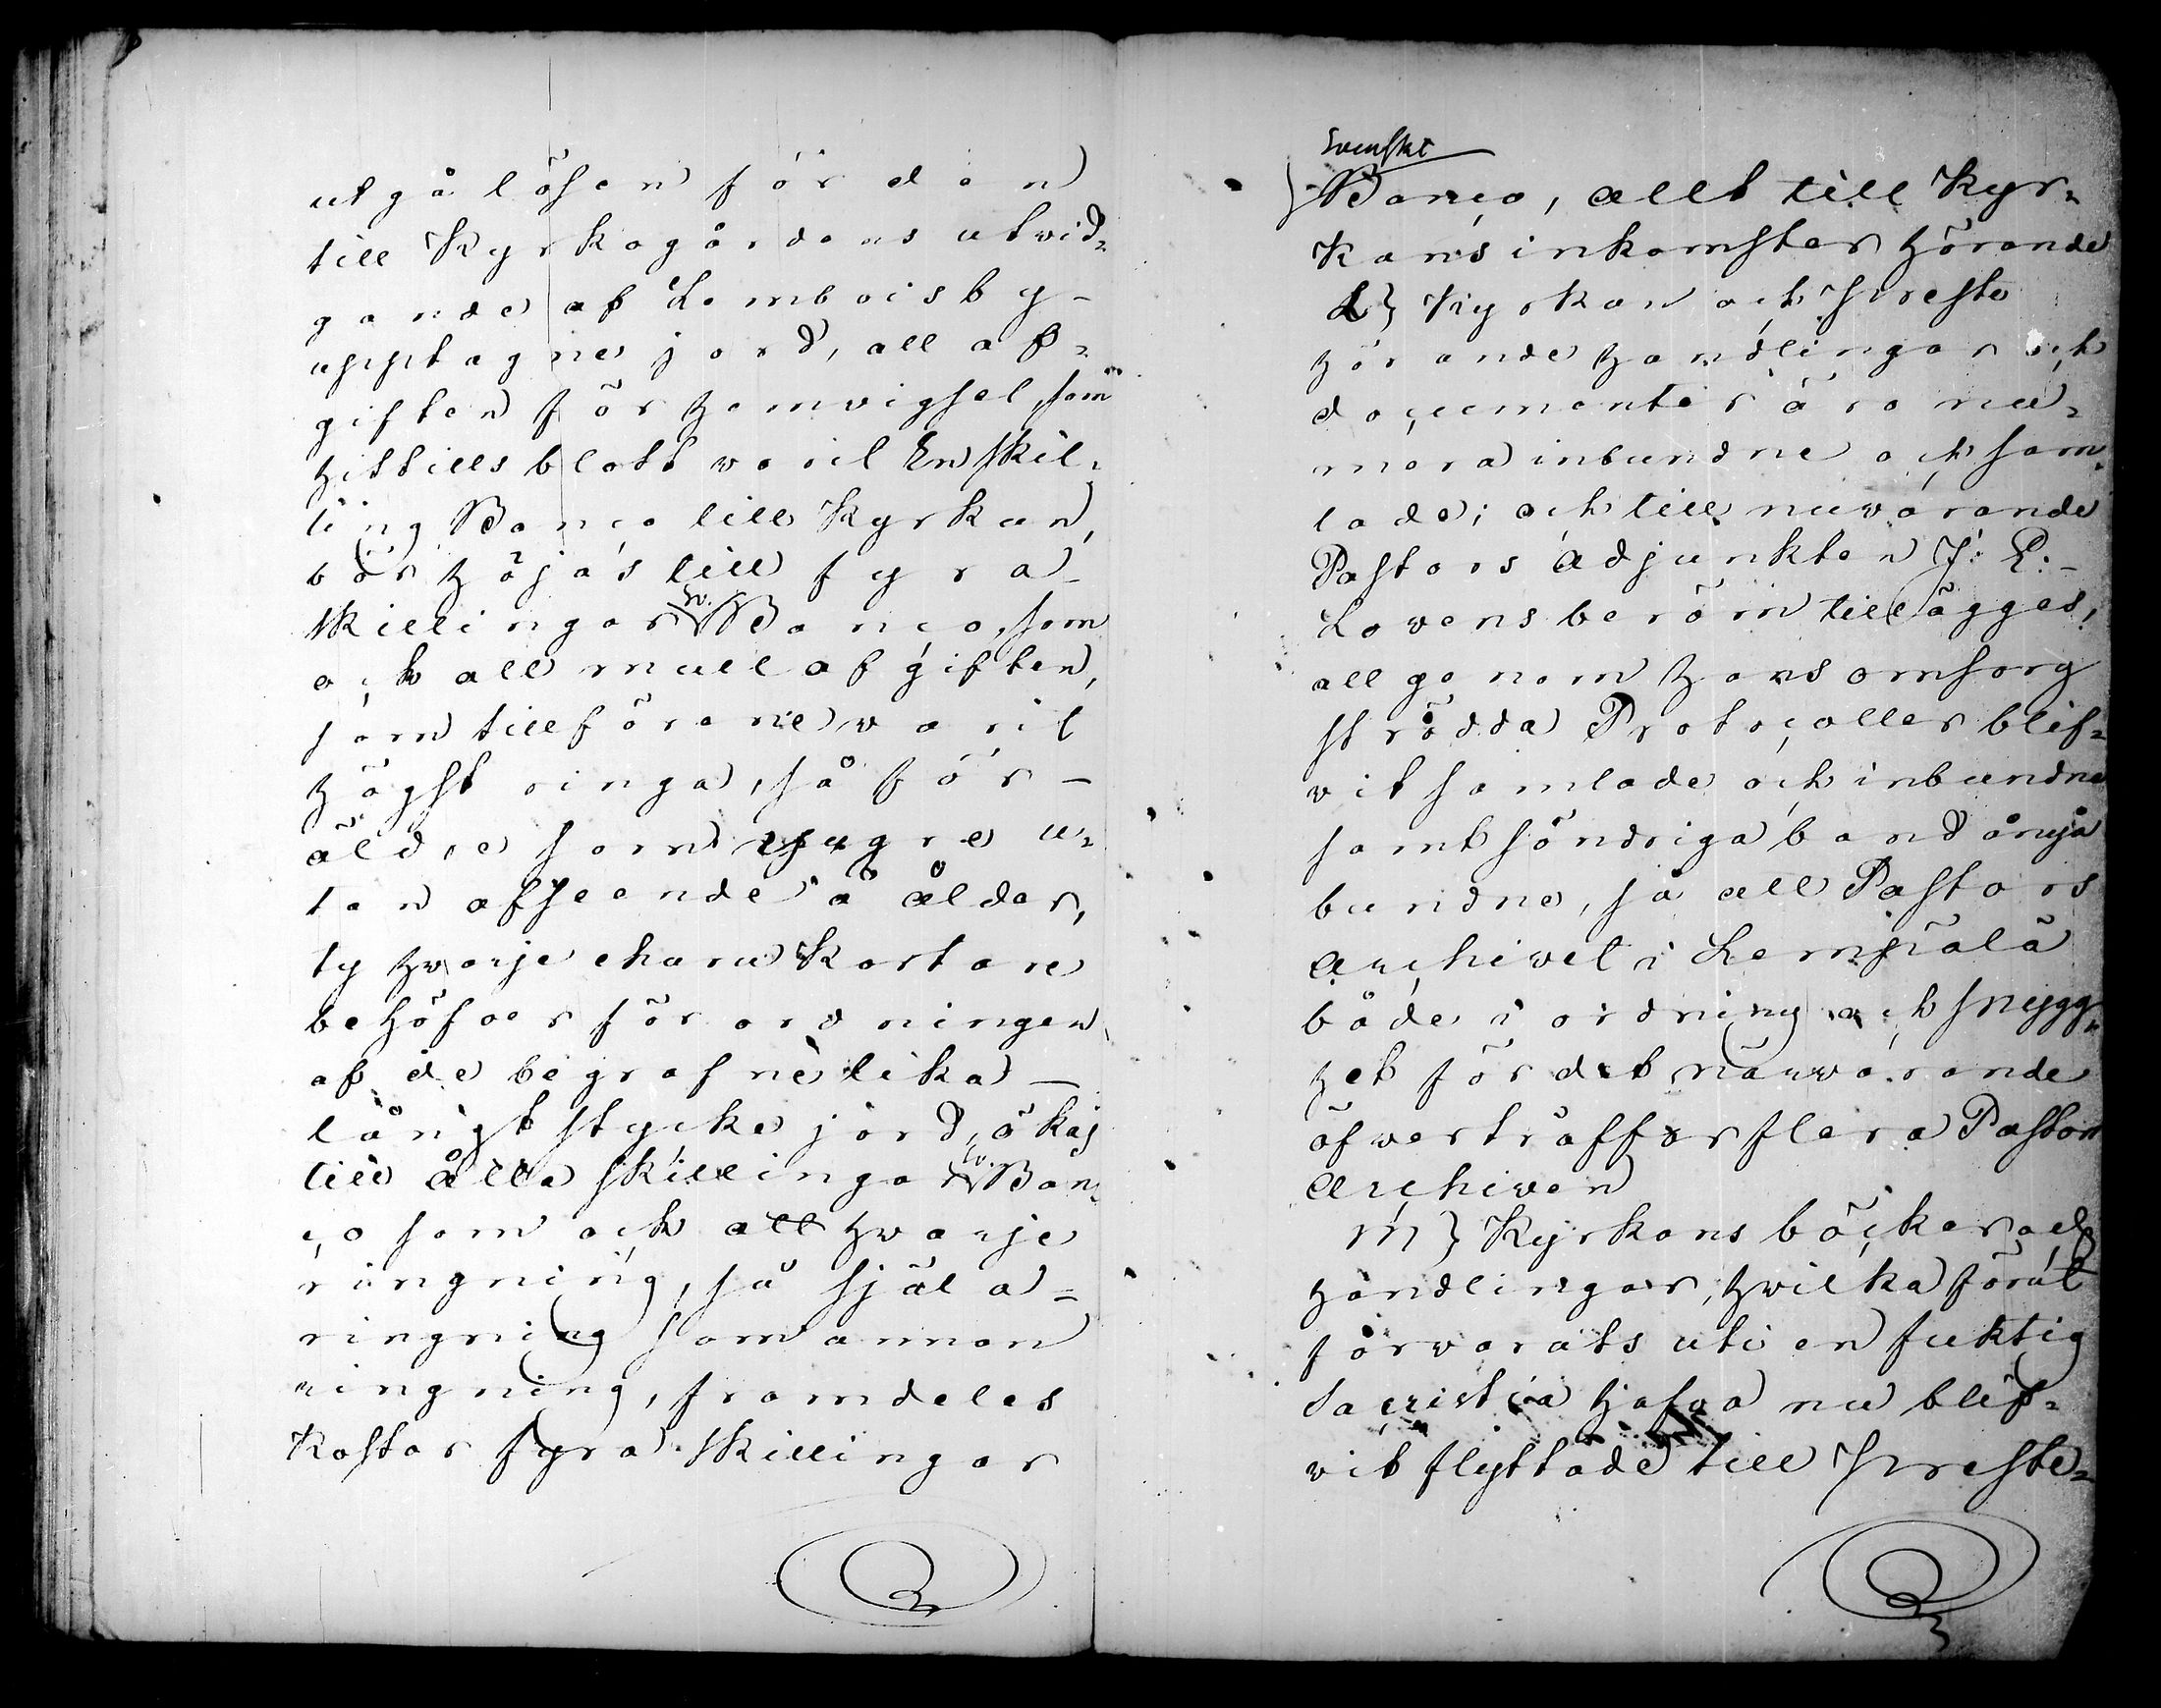 utgå lösen för den
till Kyrkogårdens utvid-
gande af Lembois by-
upptagne jord, all af-
giften för hemvigsel, som
hittills blott varit En skil-
ling Banco till Kyrkan,
bör höjas till fyra-
skillingar Sv. Banco, som
ock all mullafgiften,
som tillförene varit
högst ringa, så för-
äldre som yngre u-
tan afseende å ålder,
ty hvarje ehuru kortare
behöfver för ordningen
af de begrafne lika-
långt stycke jord, ökas
till åtta skillingar Sv. Ban-
co som ock att hvarje
ringning, så själa-
ringning som annan
ringning, framdeles
kostar fyra skillingar
Svenskt
Banco, allt till Kyr-
kans inkomster hörande
L} Kyrkan och Preste
hörande handlingar och
documenter äro nu-
mera inbundne och sam-
lade; och till nuvarande
Pastors adjunkten J: E:-
Lovens beröm tillägges,
all genom hans omsorg
strödda Protocoller blif-
vit samlade och inbundne
samt söndriga band ånyo
bundne, så all Pastors
archivet i Lempälä
både i ordning och snygg-
het för det närvarande
öfverträffar flera Pastors
Archiven
M} Kyrkans böcker och
handlingar, hvilka förut
förvarats uti en fuktig
Sacristia hafva nu blif-
vit flyttade till Preste-